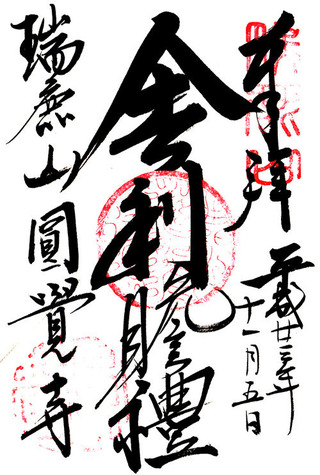 奉拝
平成廿三年
十一月五日
舎利瞻禮
瑞鹿山圓覺寺